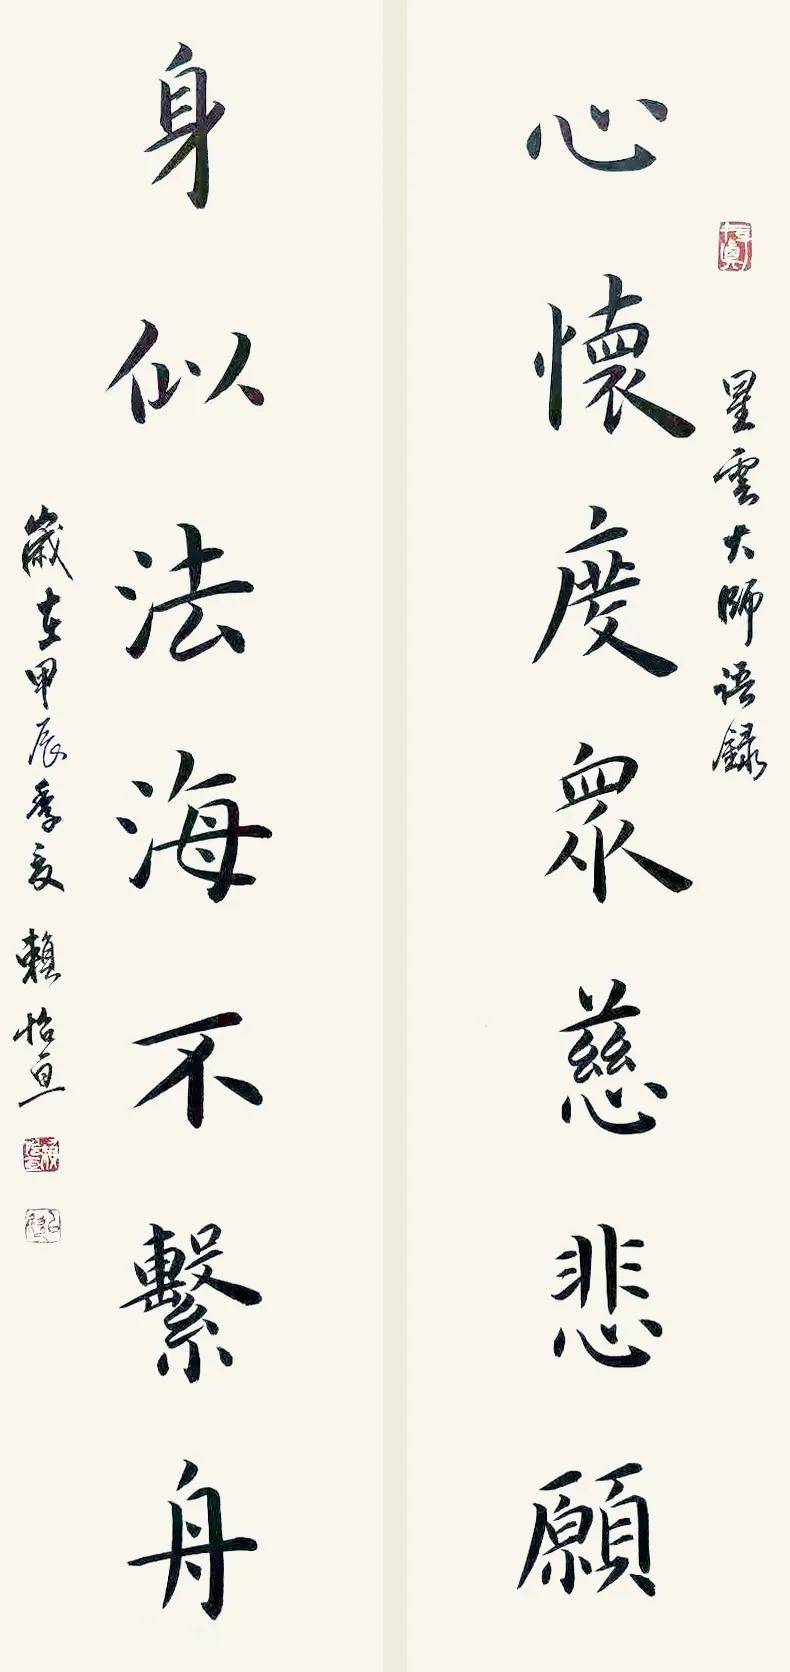 星雲大師語錄
心懷度眾慈悲願
身似法海不繫舟
歲在甲辰季夏 賴怡亘